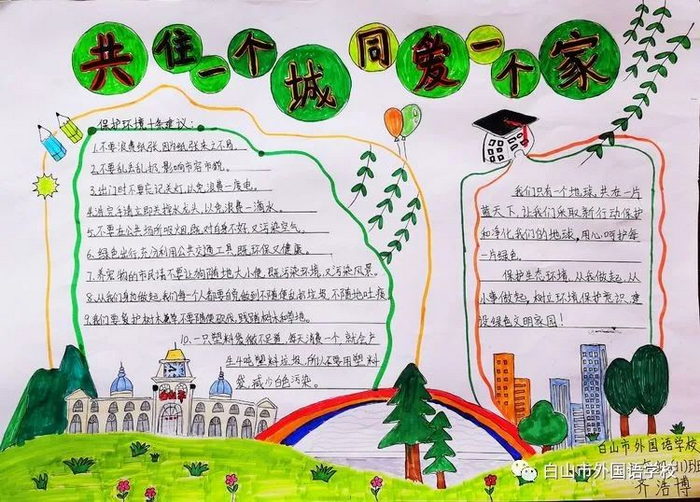 共住一个城 同爱一个家
保护环境十条建议:
1.不要浪费纸张,因为纸张来之不易。
2.不要乱丢乱扔,影响市容市貌。
3.出门时不要忘记关灯,以免浪费一度电。
4.洗完手请立即关掉水龙头,以免浪费一滴水。
5.不要在公共场所吸烟,既对自身不好,又污染空气。
6.绿色出行,充分利用公共交通工具,既环保又健康。
7.养宠物的市民请不要让狗随地大小便,既污染环境,又污染风景。
8.从我们身边做起,我们每个人都要自觉做到不随便乱扔垃圾,不随地吐痰
9.我们要爱护树木花草,不要随便砍伐,践踏树木和草地。
10.一只塑料袋微不足道,每天消费一个,就会产
生4吨塑料垃圾,所以不要用塑料
袋,减少白色污染。
我们只有一个地球,共在一片
蓝天下,让我们采取新行动保护
和净化我们的地球。用心呵护每
一片绿色。
保护生态环境,从我做起,从
小事做起,树立环境保护意识,建
设绿色文明家园!
白山市外国语学校
齐浩博
白山市外国语学校